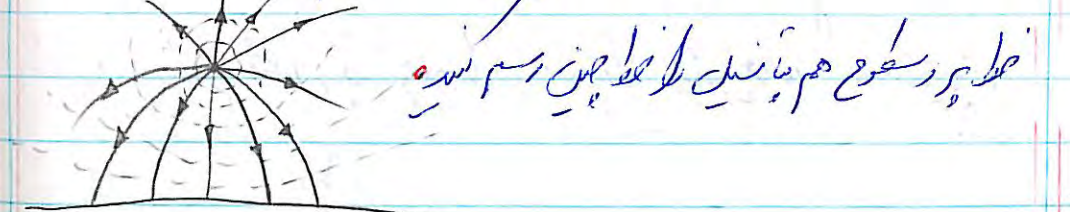 خط پر و سطوح هم پتانسیل را خط چین رسم کنید.